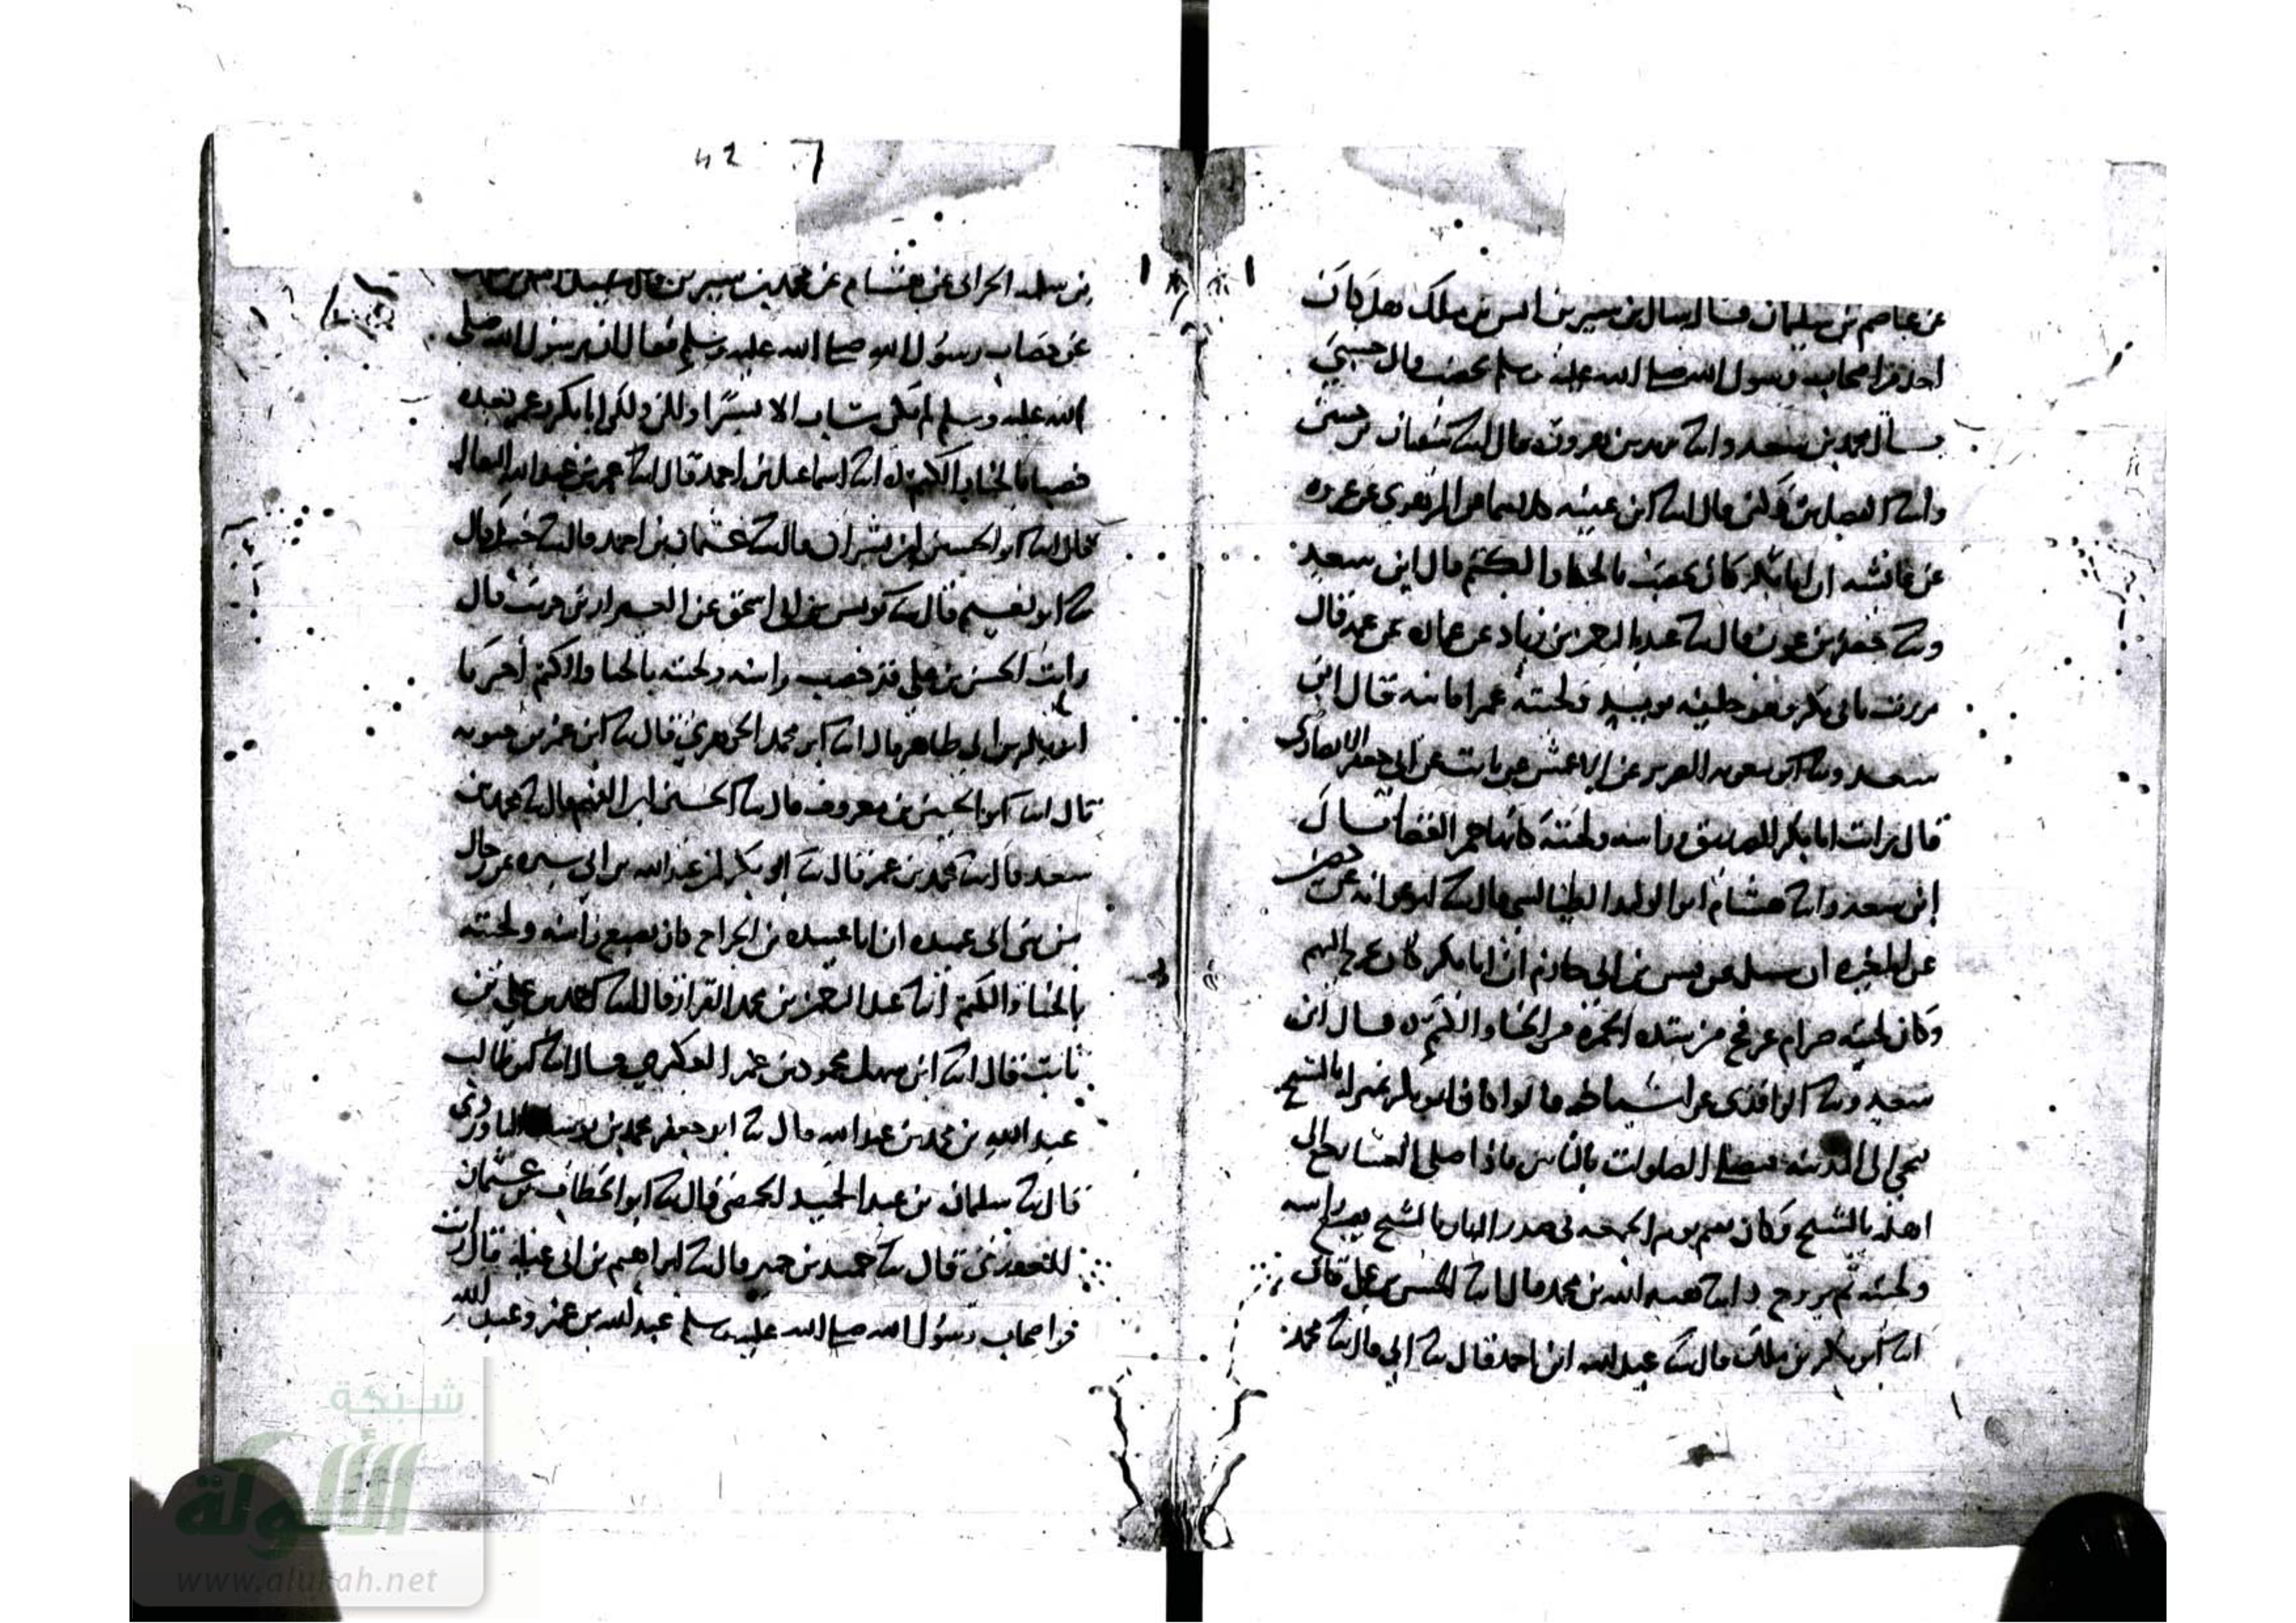 عن عاصم بن سليمان قال سال بن سيرين انس بن ملك هل كان
احد من اصحاب رسول الله صلى الله عليه وسلم يخضب قال حسبي
سال محمد بن سعد وانا يزيد بن هرون قال انا سفيان بن حسين
وانا الفضل بن دكين قال انا ابن عيينه كلاهما عن الزهري عن عروه
عن عائشه ان ابا بكر كان يخضب بالحنا والكتم قال ابن سعد
ونا جعفر بن عون قال نا عبد الرحمن بن زياد عن عماره عن عمه قال
مررت بابي بكر وهو خليفه يوميذ ولحيته حمرا قانيه قال ابن
سعد ونا ابو معويه الضرير عن الاعمش عن ثابت عن ابي جعفر الانصاري
قال رايت ابا بكر الصديق وراسه ولحيته كانها جمر الغضا قال
ابن سعد وانا هشام ابو الوليد الطيالسي قال نا ابو عوانه عن حصين
عن المغيره ان شبيل عن قيس بن ابي حازم ان ابا بكر كان يخرج اليهم
وكان لحيته ضرام عرفج من شده الحمره من الحنا والكتم قال ابن
سعد ونا الواقدي عن اشياخه قالوا كان ابو بكر
يجي الى المدينه فيصلي الصلوات بالناس فاذا صلى العشا رجع الى
اهله بالسنح وكان يقيم يوم الجمعه في صدر النهار بالسنح يصبغ راسه
ولحيته ثم يروح وانا هبه الله بن محمد قال انا الحسن بن علي قال
انا ابو بكر بن ملك قال نا عبد الله ابن احمد قال نا ابي قال نا محمد
42
بن سلمه الحراني عن هشام عن محمد بن سيرين قال سيل انس بن ملك
عن خضاب رسول الله صلى الله عليه وسلم فقال ان رسول الله صلى
الله عليه وسلم لم يكن شاب الا يسيرا ولكن ابا بكر وعمر بعده
خضبا بالحنا والكتم انا اسماعيل بن احمد قال انا عمر بن عبد الله البقال
قال انا ابو الحسين ابن بشران قال نا عثمان بن احمد قال نا حنبل قال
نا ابو نعيم قال نا يونس بن ابي اسحق عن العيزار بن حريث قال
رايت الحسن بن علي قد خضب راسه ولحيته بالحنا والكتم اخبرنا
ابو بكر بن ابي طاهر قال انا ابو محمد الجوهري قال نا ابو عمر بن حيويه
قال انا ابو الحسين بن معروف قال نا الحسين ابن الفهم قال نا محمد بن
سعد قال نا محمد بن عمر قال نا ابو بكر بن عبد الله بن ابي سبره عن رجال
من بني ابي عبيده ان ابا عبيده بن الجراح كان يصبغ راسه ولحيته
بالحنا والكتم انا عبد الرحمن بن محمد القزاز قال انا احمد بن علي بن
ثابت قال انا ابن سهل محمود بن عمر العكبري قال انا ابو طالب
عبد الله بن محمد بن عبد الله قال نا ابو جعفر محمد بن
قال نا سلمان بن عبد الحميد الحمصي قال نا ابو الخطاب بن عثمان
الفوزي قال نا محمد بن حمير قال نا ابراهيم بن ابي عبله قال رايت
من اصحاب رسول الله صلى الله عليه وسلم عبد الله بن عمر وعبد الله
شبكة
الألوكة
www.alukah.net